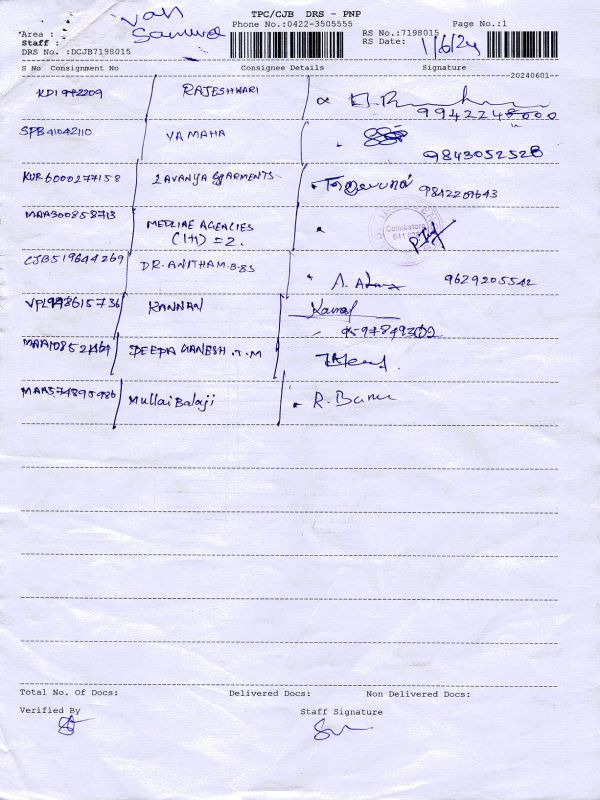 TPC/CJB DRS - PNP
Van
Phone No.:0422-3505555 Page No.:1
Area :
RS No.:7198015
Staff :
RS Date: 1/6/24
DRS No. :DCJB7198015
S No Consignment No Consignee Details Signature
--20240601--
RAJESHWARI
9942248000
SPB41042110 YAMAHA
9843052528
KUR6000277158 LAVANYA GARMENTS
9842207643
MAA300858713 MEDLINE AGENCIES
(1+1) = 2.
Coimbatore
CJB519644269 DR. ANITHA M.B.BS
9629205542
VPL998615736 KANNAN
9597849302
DEEPA GANESH .T.M
MAA574895986 Mullai Balaji R. Banu
Total No. Of Docs: Delivered Docs: Non Delivered Docs:
Verified By Staff Signature